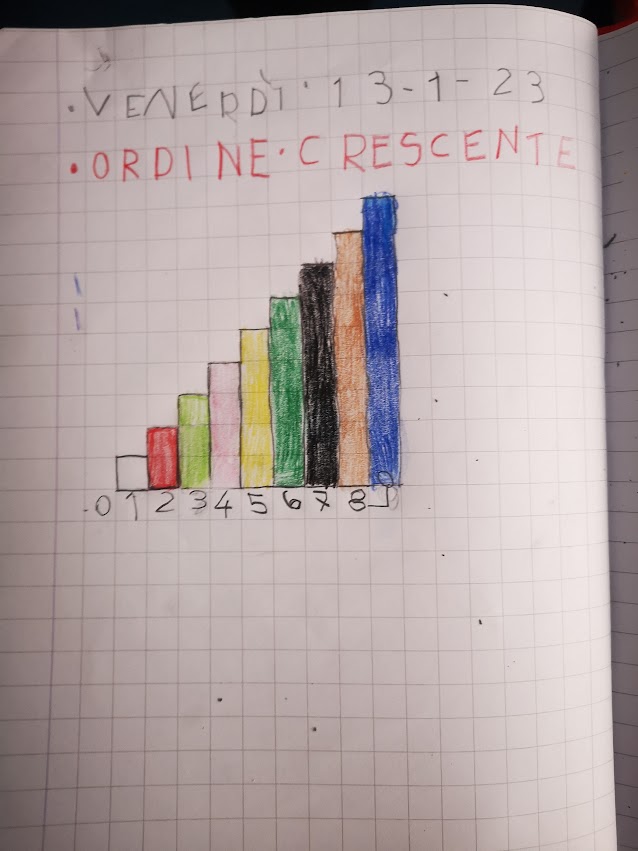 ·VENERDÌ·13-1-23
·ORDINE·CRESCENTE
0 1 2 3 4 5 6 7 8 9